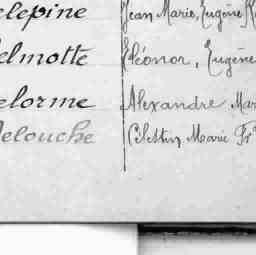 elepine Jean Marie, Eugène
elmotte Eléonor, Eugène
elorme Alexandre Mar
elouche Célestin Marie Fr